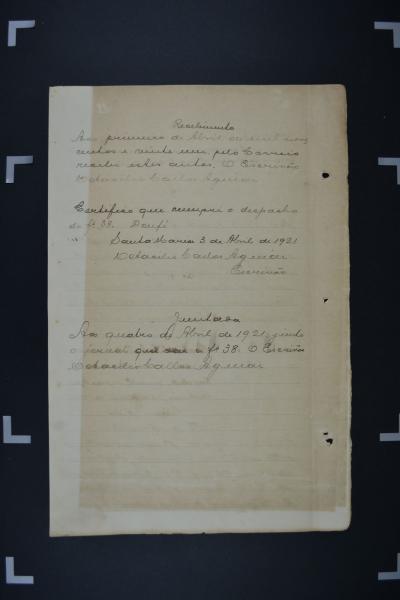 Recebimento
Aos primeiro de Abril de mil nove
centos e vinte um, pelo Correio
recebi estes autos. O Escrivão
Octacilio Carlos Aguiar
Certefico que cumpri o despacho
de fs 38. Doufé
Santa Maria 3 de Abril de 1921
Octacilio Carlos Aguiar
Escrivão
Juntada
Aos quatro de Abril de 1921, junto
o jornal que de fs 38. O Escrivão
Octacilio Carlos Aguiar